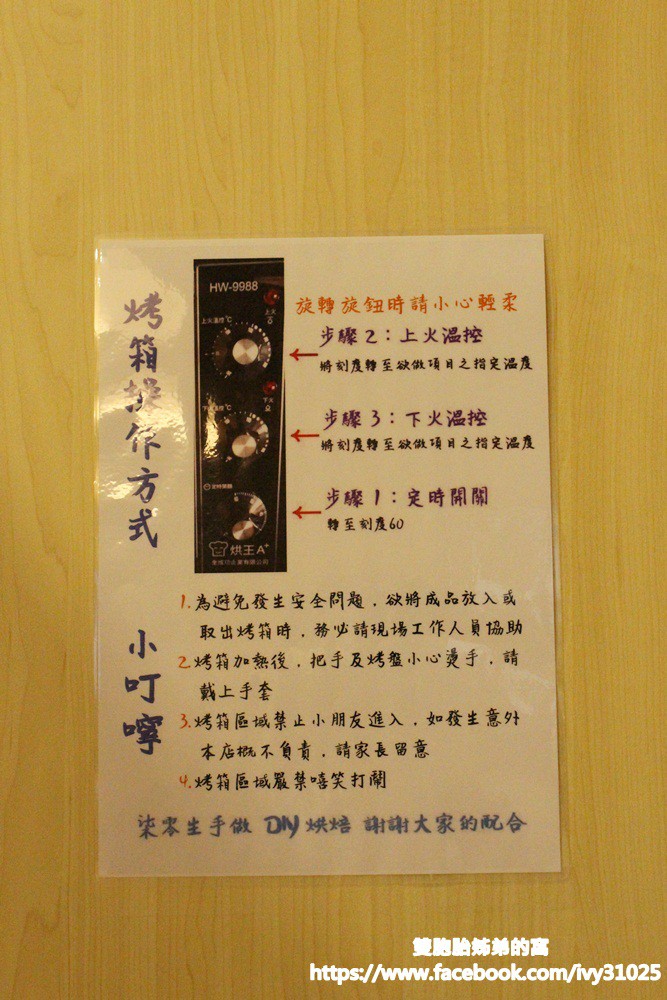 烤箱操作方式
HW-9988
上火
上火溫控℃
下火
下火溫控℃
定時開關
烘王A+
旋轉旋鈕時請小心輕柔
步驟2：上火溫控
將刻度轉至欲做項目之指定溫度
步驟3：下火溫控
將刻度轉至欲做項目之指定溫度
步驟1：定時開關
轉至刻度60
小叮嚀
1.為避免發生安全問題，欲將成品放入或
取出烤箱時，務必請現場工作人員協助
2.烤箱加熱後，把手及烤盤小心燙手，請
戴上手套
3.烤箱區域禁止小朋友進入，如發生意外
本店概不負責，請家長留意
4.烤箱區域嚴禁嘻笑打鬧
柒零生手做 DIY 烘焙 謝謝大家的配合
雙胞胎姊弟的窩
https://www.facebook.com/ivy31025